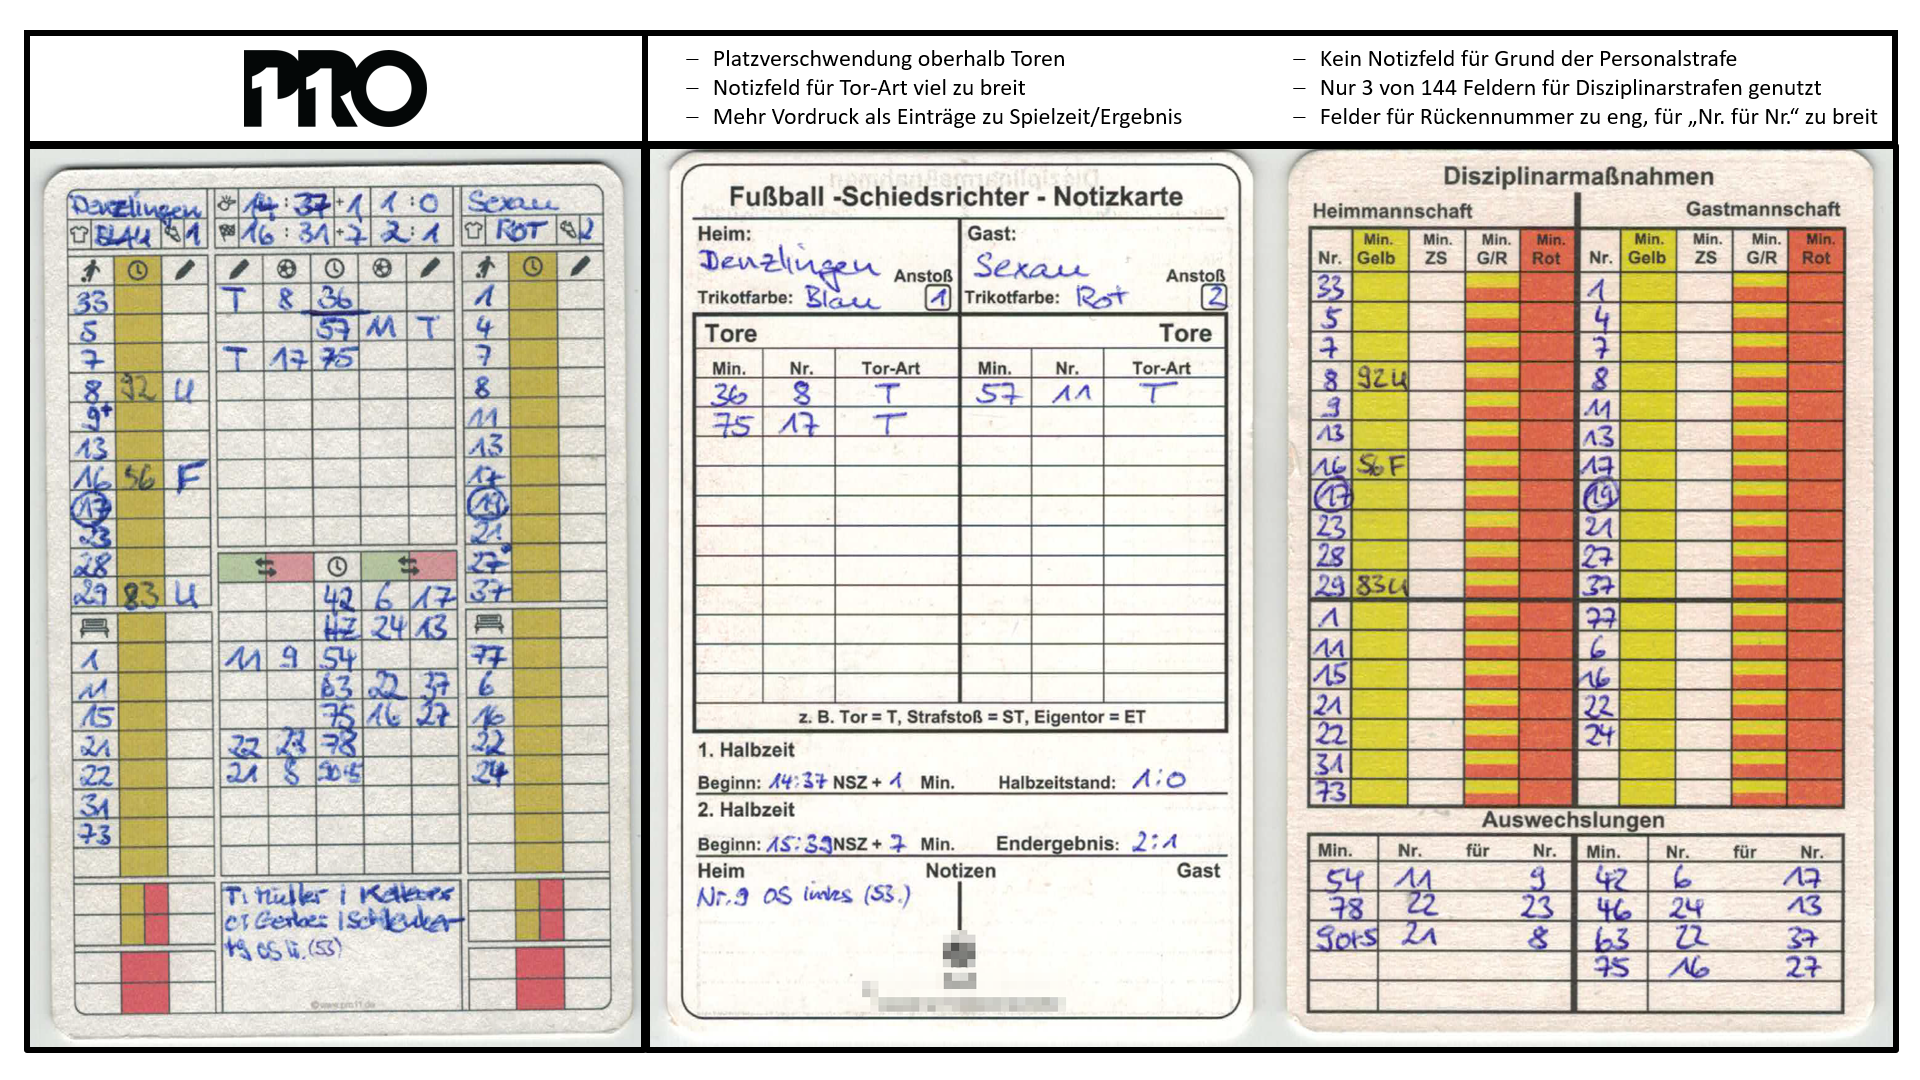 PRO
– Platzverschwendung oberhalb Toren
– Notizfeld für Tor-Art viel zu breit
– Mehr Vordruck als Einträge zu Spielzeit/Ergebnis
– Kein Notizfeld für Grund der Personalstrafe
– Nur 3 von 144 Feldern für Disziplinarstrafen genutzt
– Felder für Rückennummer zu eng, für „Nr. für Nr.“ zu breit
Denzlingen 14 : 37 +1 1 : 0 Sexau
BLAU 1 16 : 31 +7 2 : 1 ROT 2
33 T 8 36 1
5 57 11 T 4
7 T 17 75 7
8 92 U 8
9+ 11
13 13
16 56 F 17
17 19
23 21
28 27
29 83 U 42 6 17 37
24 13
1 11 9 54 77
11 63 22 37 6
15 75 16 27 16
21 22 23 78 22
22 21 8 90+5 24
31
73
T: Müller /
C: Gerber /
+9 OS li. (53)
© www.pro11.de
Fußball -Schiedsrichter - Notizkarte
Heim: Gast:
Denzlingen Anstoß Sexau Anstoß
Trikotfarbe: Blau 1 Trikotfarbe: Rot 2
Tore Tore
Min. Nr. Tor-Art Min. Nr. Tor-Art
36 8 T 57 11 T
75 17 T
z. B. Tor = T, Strafstoß = ST, Eigentor = ET
1. Halbzeit
Beginn: 14:37 NSZ + 1 Min. Halbzeitstand: 1:0
2. Halbzeit
Beginn: 15:39 NSZ + 7 Min. Endergebnis: 2:1
Heim Notizen Gast
Nr. 9 OS links (53.)
Disziplinarmaßnahmen
Heimmannschaft Gastmannschaft
Min. Min. Min. Min. Min. Min. Min. Min.
Nr. Gelb ZS G/R Rot Nr. Gelb ZS G/R Rot
33 1
5 4
7 7
8 92U 8
9 11
13 13
16 56 F 17
17 19
23 21
28 27
29 83U 37
1 77
11 6
15 16
21 22
22 24
31
73
Auswechslungen
Min. Nr. für Nr. Min. Nr. für Nr.
54 11 9 42 6 17
78 22 23 46 24 13
90+5 21 8 63 22 37
75 16 27